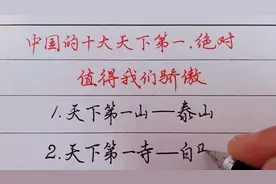 中国的十大天下第一,绝对
值得我们骄傲
1.天下第一山——泰山
2.天下第一寺——白